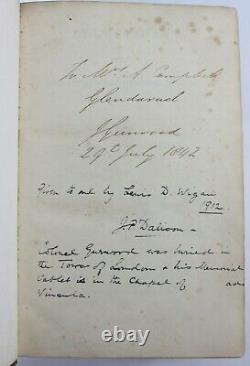 To Mrs A. Campbell
Glendaruel
J Gurwood
29th July 1842
Given to me by Lewis D. Wigan
1912.
J.P. Dalison
Colonel Gurwood was buried in
the Tower of London & his Memorial
Tablet is in the Chapel of
Vincula.
hangend.com